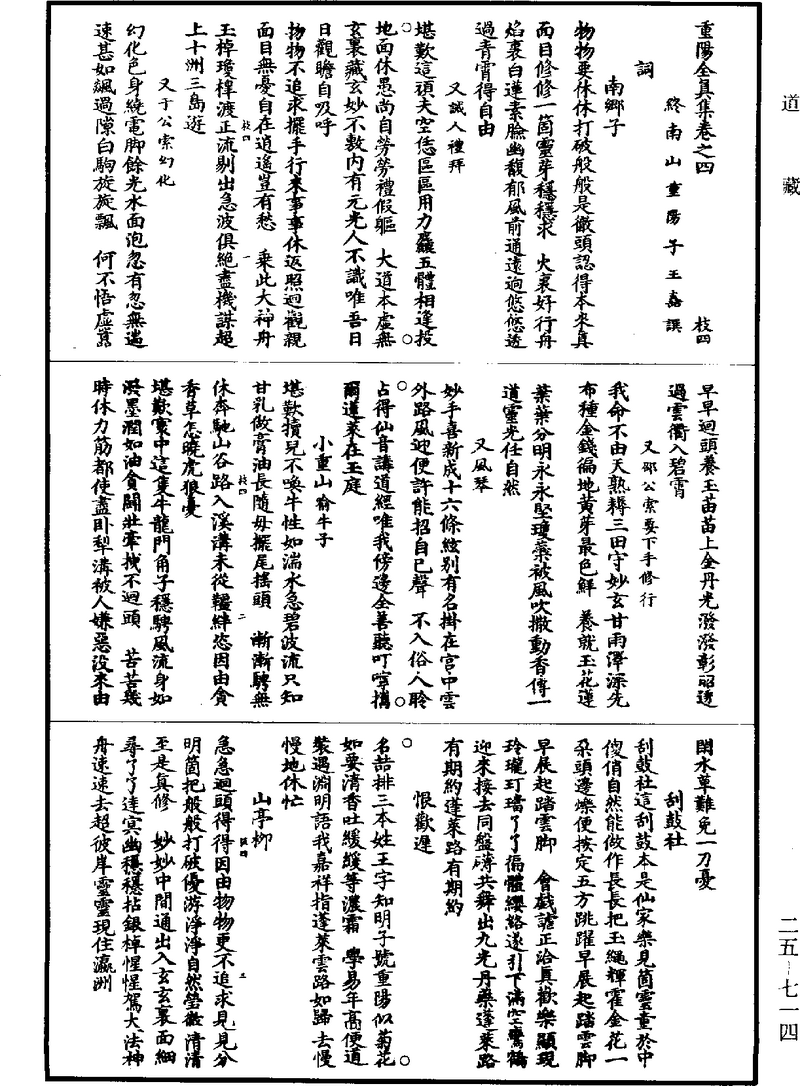 道藏
重陽全真集卷之四 枝四
終南山重陽子王嘉譔
詞
南鄉子
物物要休休打破般般是徹頭認得本來真
面目修修一箇靈芽穩穩求 火裏好行舟
焰裏白蓮素臉幽馥郁風前通遠逈悠悠透
過青霄得自由
又誡人禮拜
堪歎這頑夫空恁區區用力麤五體相逢投
地面休愚尚自勞勞禮假軀 大道本虛無
玄裏藏玄妙不敷內有元光人不識唯吾日
日觀瞻自吸呼
物物不追求擺手行來事事休返照迴觀親
面目無憂自在逍遙豈有愁 乘此大神舟
玉棹瓊槹渡正流剔出急波俱絕盡機謀超
上十洲三島遊
又于公索幻化
幻化色身繞電脚餘光水面泡忽有忽無遄
速甚如颻過隙白駒旋旋飄 何不悟虛囂
早早迴頭養玉苗苗上金丹光潑潑彰昭透
過雲衢入碧霄
又邵公索要下手修行
我命不由天熟耨三田守妙玄甘雨澤深先
布種金錢徧地黃芽最色鮮 養就玉花蓮
葉葉分明永永堅瓊蘂被風吹撒動香傳一
道靈光任自然
又風琴
妙手喜新成十六條絃別有名掛在宮中雲
外路風迎便許能招自己聲 不入俗人聆
占得仙音講道經唯我傍邊全善聽叮嚀擕
爾蓬萊在玉庭
小重山喻牛子
堪歎犢兒不喚牛性如湍水急碧波流只知
甘乳做膏油長隨母擺尾搖頭 漸漸騁無
休奔馳山谷路入溪溝未從韁絆恣因由貪
香草怎曉虎狼憂
堪歎寰中這隻牛龍門角子穩騁風流身如
潑墨潤如油貪鬬壯牽拽不迴頭 苦苦幾
時休力筋都使盡臥犁溝被人嫌惡沒來由
閑水草難免一刀憂
刮鼓社
刮鼓社這刮鼓本是仙家樂見箇靈童於中
傻俏自然能做作長長把玉繩輝霍金花一
朵頭邊爍便按定五方跳躍早展起踏雲脚
早展起踏雲脚 會戲謔正洽真歡樂顯現
玲瓏玎璫了了徧體纓絡遂引下滿空鸞鶴
迎來接去同盤礡共舞出九光丹藥蓬萊路
有期約蓬萊路有期約
恨歡遲
名喆排三本姓王字知明子號重陽似菊花
如要清香吐緩緩等濃霜 學易年高便道
裝遇淵明語我嘉祥指蓬萊雲路如歸去慢
慢地休忙
山亭柳
急急迴頭得得因由物物更不追求見見分
明箇把般般打破優游淨淨自然瑩徹清清
至是真修 妙妙中間通出入玄玄裏面細
尋了了達冥幽穩穩拈銀棹惺惺駕大法神
舟速速去超彼岸靈靈現住瀛洲
二五–七一四